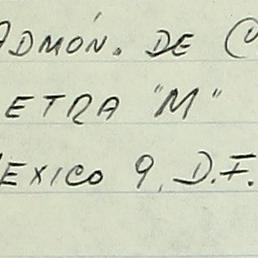 ADMÓN. DE C
ETRA "M"
EXICO 9, D.F.